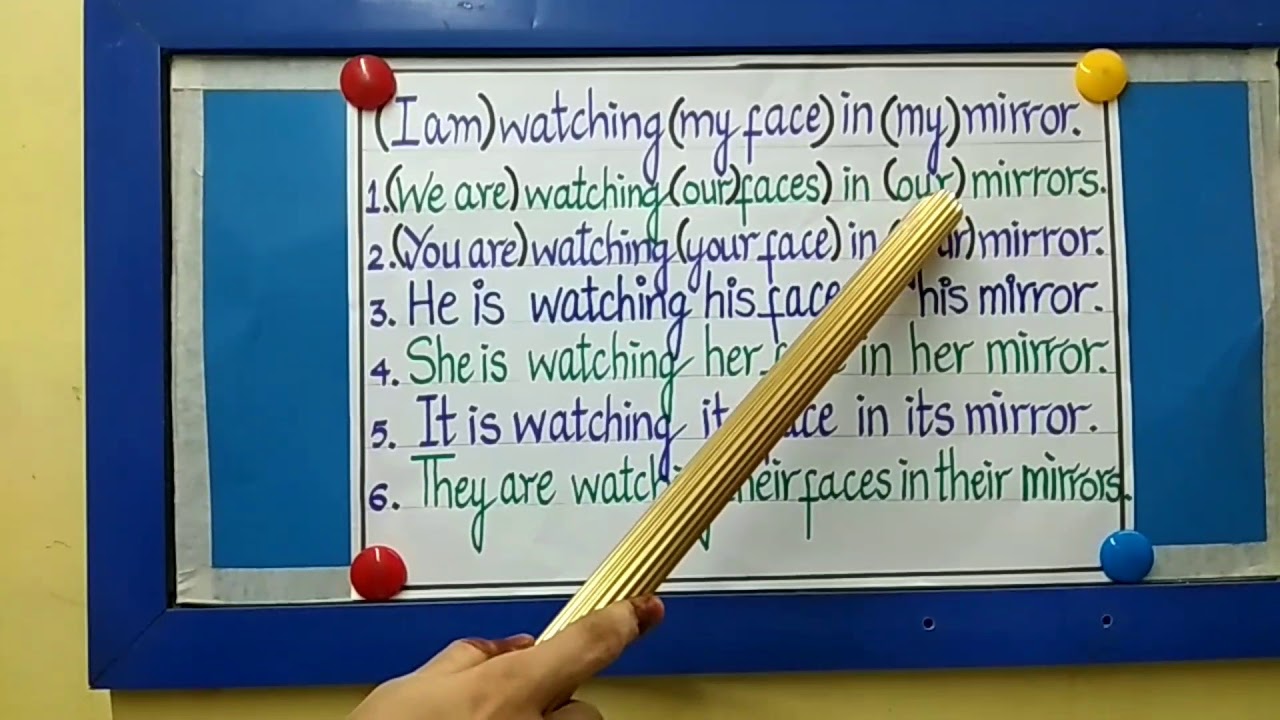 (I am) watching (my face) in (my) mirror.
1. (We are) watching (our) faces) in (our) mirrors.
2. (You are) watching (your face) in mirror.
3. He is watching his face his mirror.
4. She is watching her in her mirror.
5. It is watching in its mirror.
6. They are faces in their mirrors.